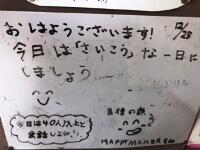 おはようございます! 12/25
今日は「さいこう」な一日に
しましょう
今日は40人以上と
会話しよう!
自信の森
HAPPY MAKER